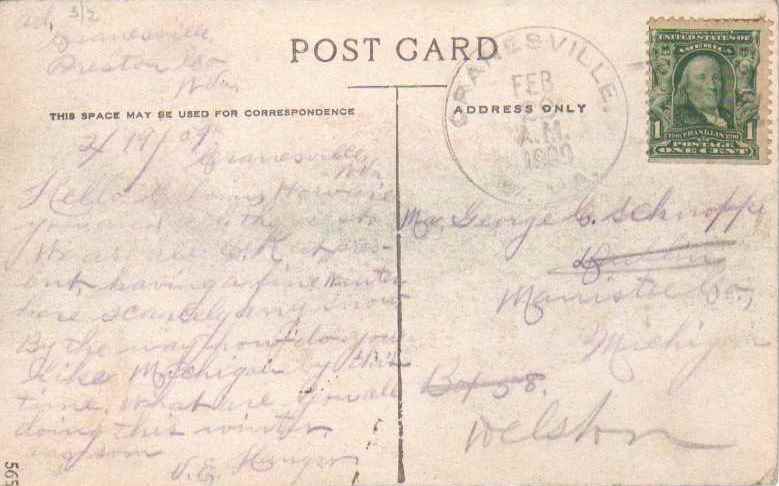 3/2
Cranesville,
Preston Co
W.Va.
POST CARD
THIS SPACE MAY BE USED FOR CORRESPONDENCE
ADDRESS ONLY
CRANESVILLE,
FEB
A.M.
1909
UNITED STATES OF
AMERICA
1
FRANKLIN
POSTAGE
ONE CENT
1
2/19/09
Cranesville,
W.Va
Hello
you
We are all O.K. at pres-
ent, having a fine winter
here scarcely any snow
By the way how do you
like Michigan by this
time. What are you all
doing this winter.
V. E.
Mr. George C. Schroppe
Manistee Co.,
Michigan
Box 58.
Welston
565